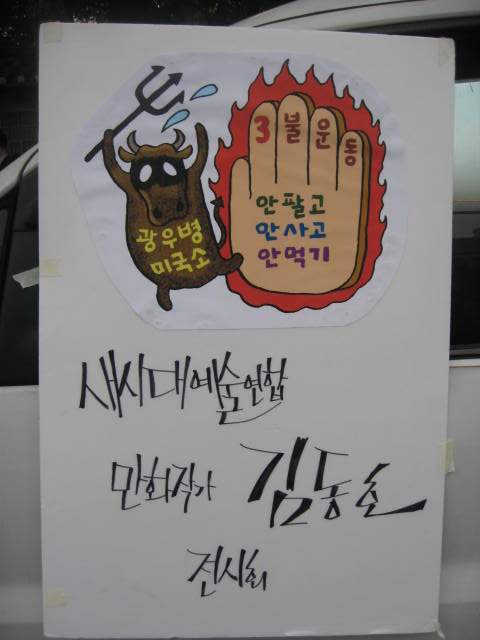 3불운동
안팔고
안사고
안먹기
광우병
미국소
새시대예술연합
만화작가 김동호
전시회